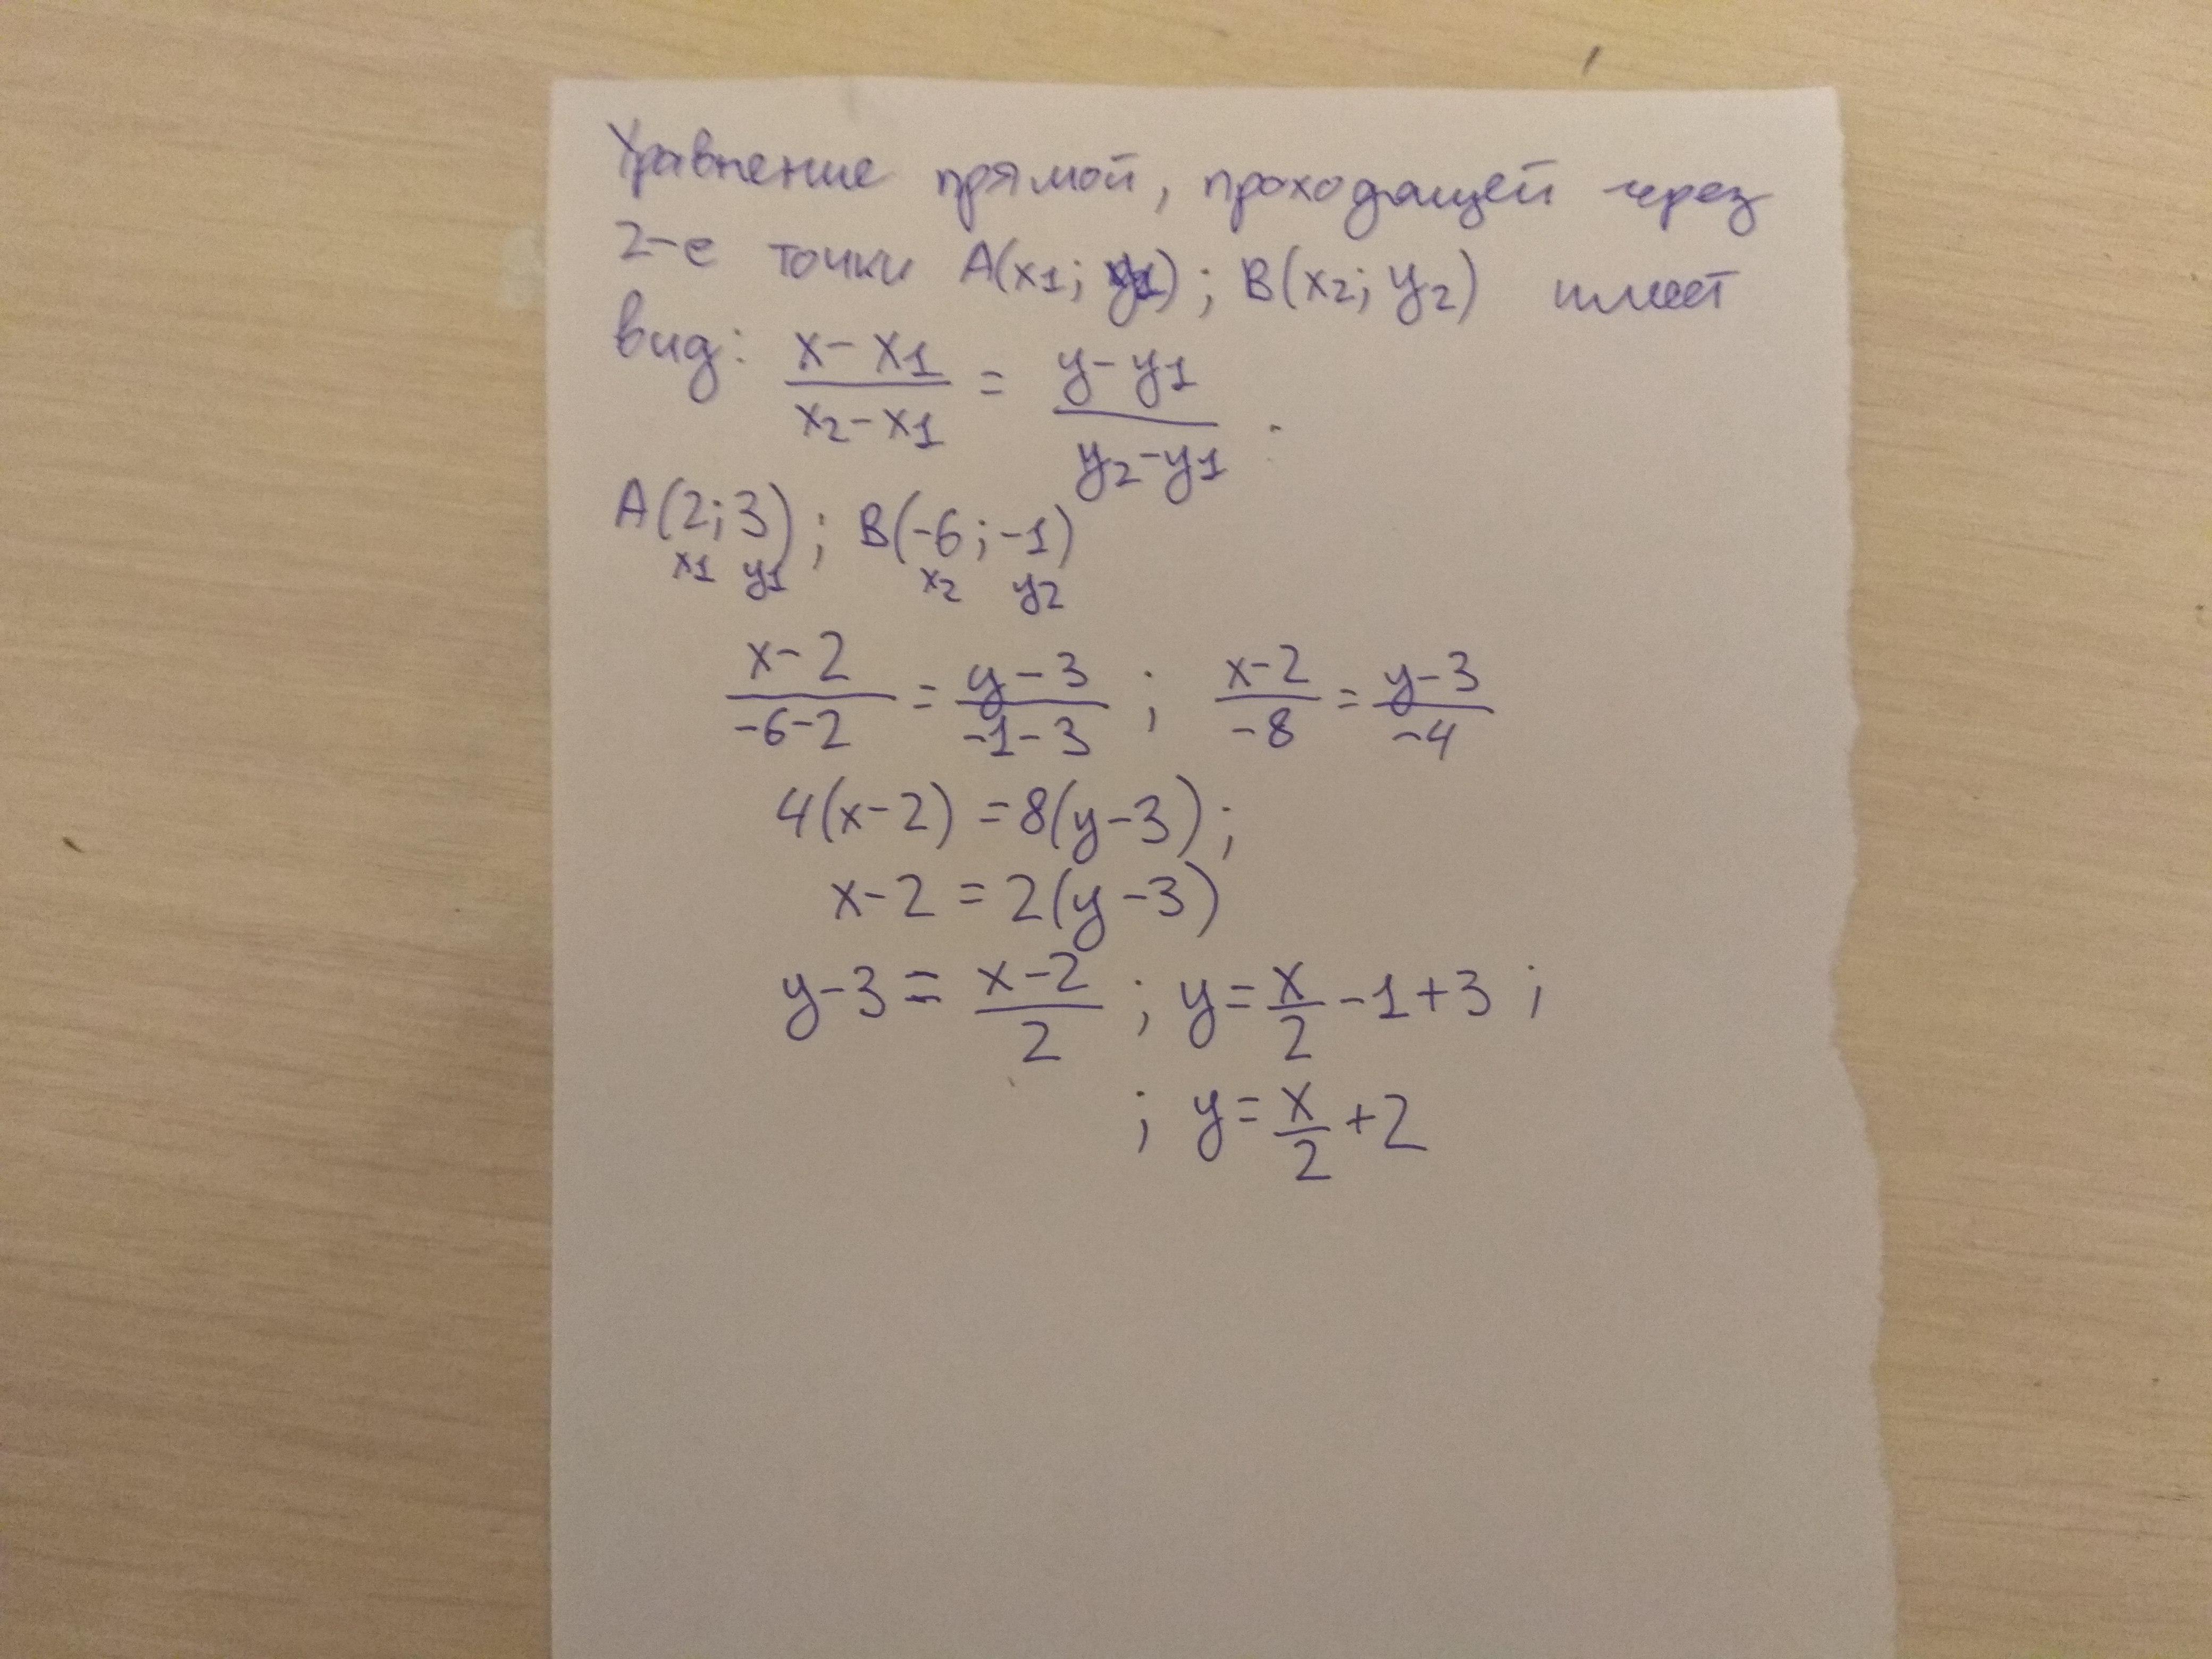 Уравнение прямой, проходящей через
2-е точки A(x1; y1); B(x2; y2) имеет
вид: (x - x1)/(x2 - x1) = (y - y1)/(y2 - y1).
A(2; 3); B(-6; -1)
x1 y1 x2 y2
(x - 2)/(-6 - 2) = (y - 3)/(-1 - 3); (x - 2)/(-8) = (y - 3)/(-4)
4(x - 2) = 8(y - 3);
x - 2 = 2(y - 3)
y - 3 = (x - 2)/2; y = x/2 - 1 + 3;
; y = x/2 + 2